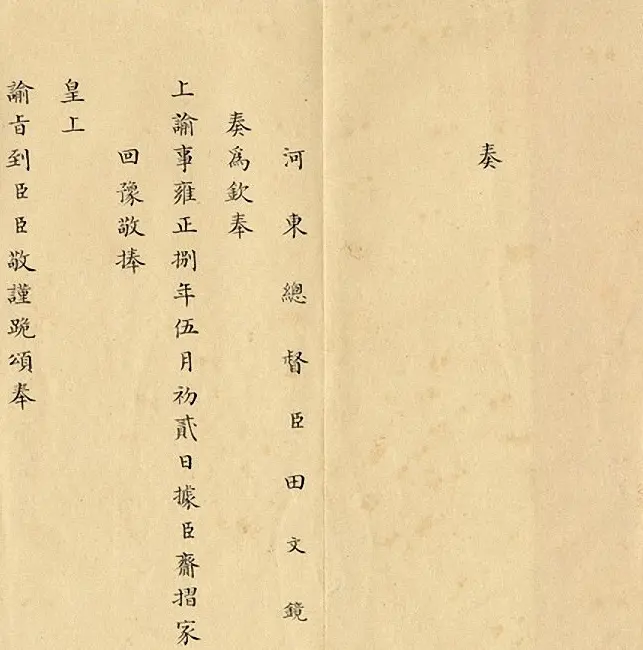 奏
河東總督臣田文鏡
奏為欽奉
上諭事雍正捌年伍月初貳日據臣齎摺家
回豫敬捧
皇上
諭旨到臣臣敬謹跪頌奉